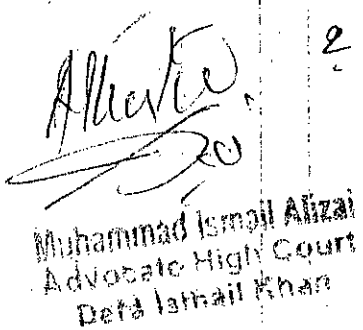 2
Attested
Muhammad Ismail Alizai
Advocate High Court
Dera Ismail Khan